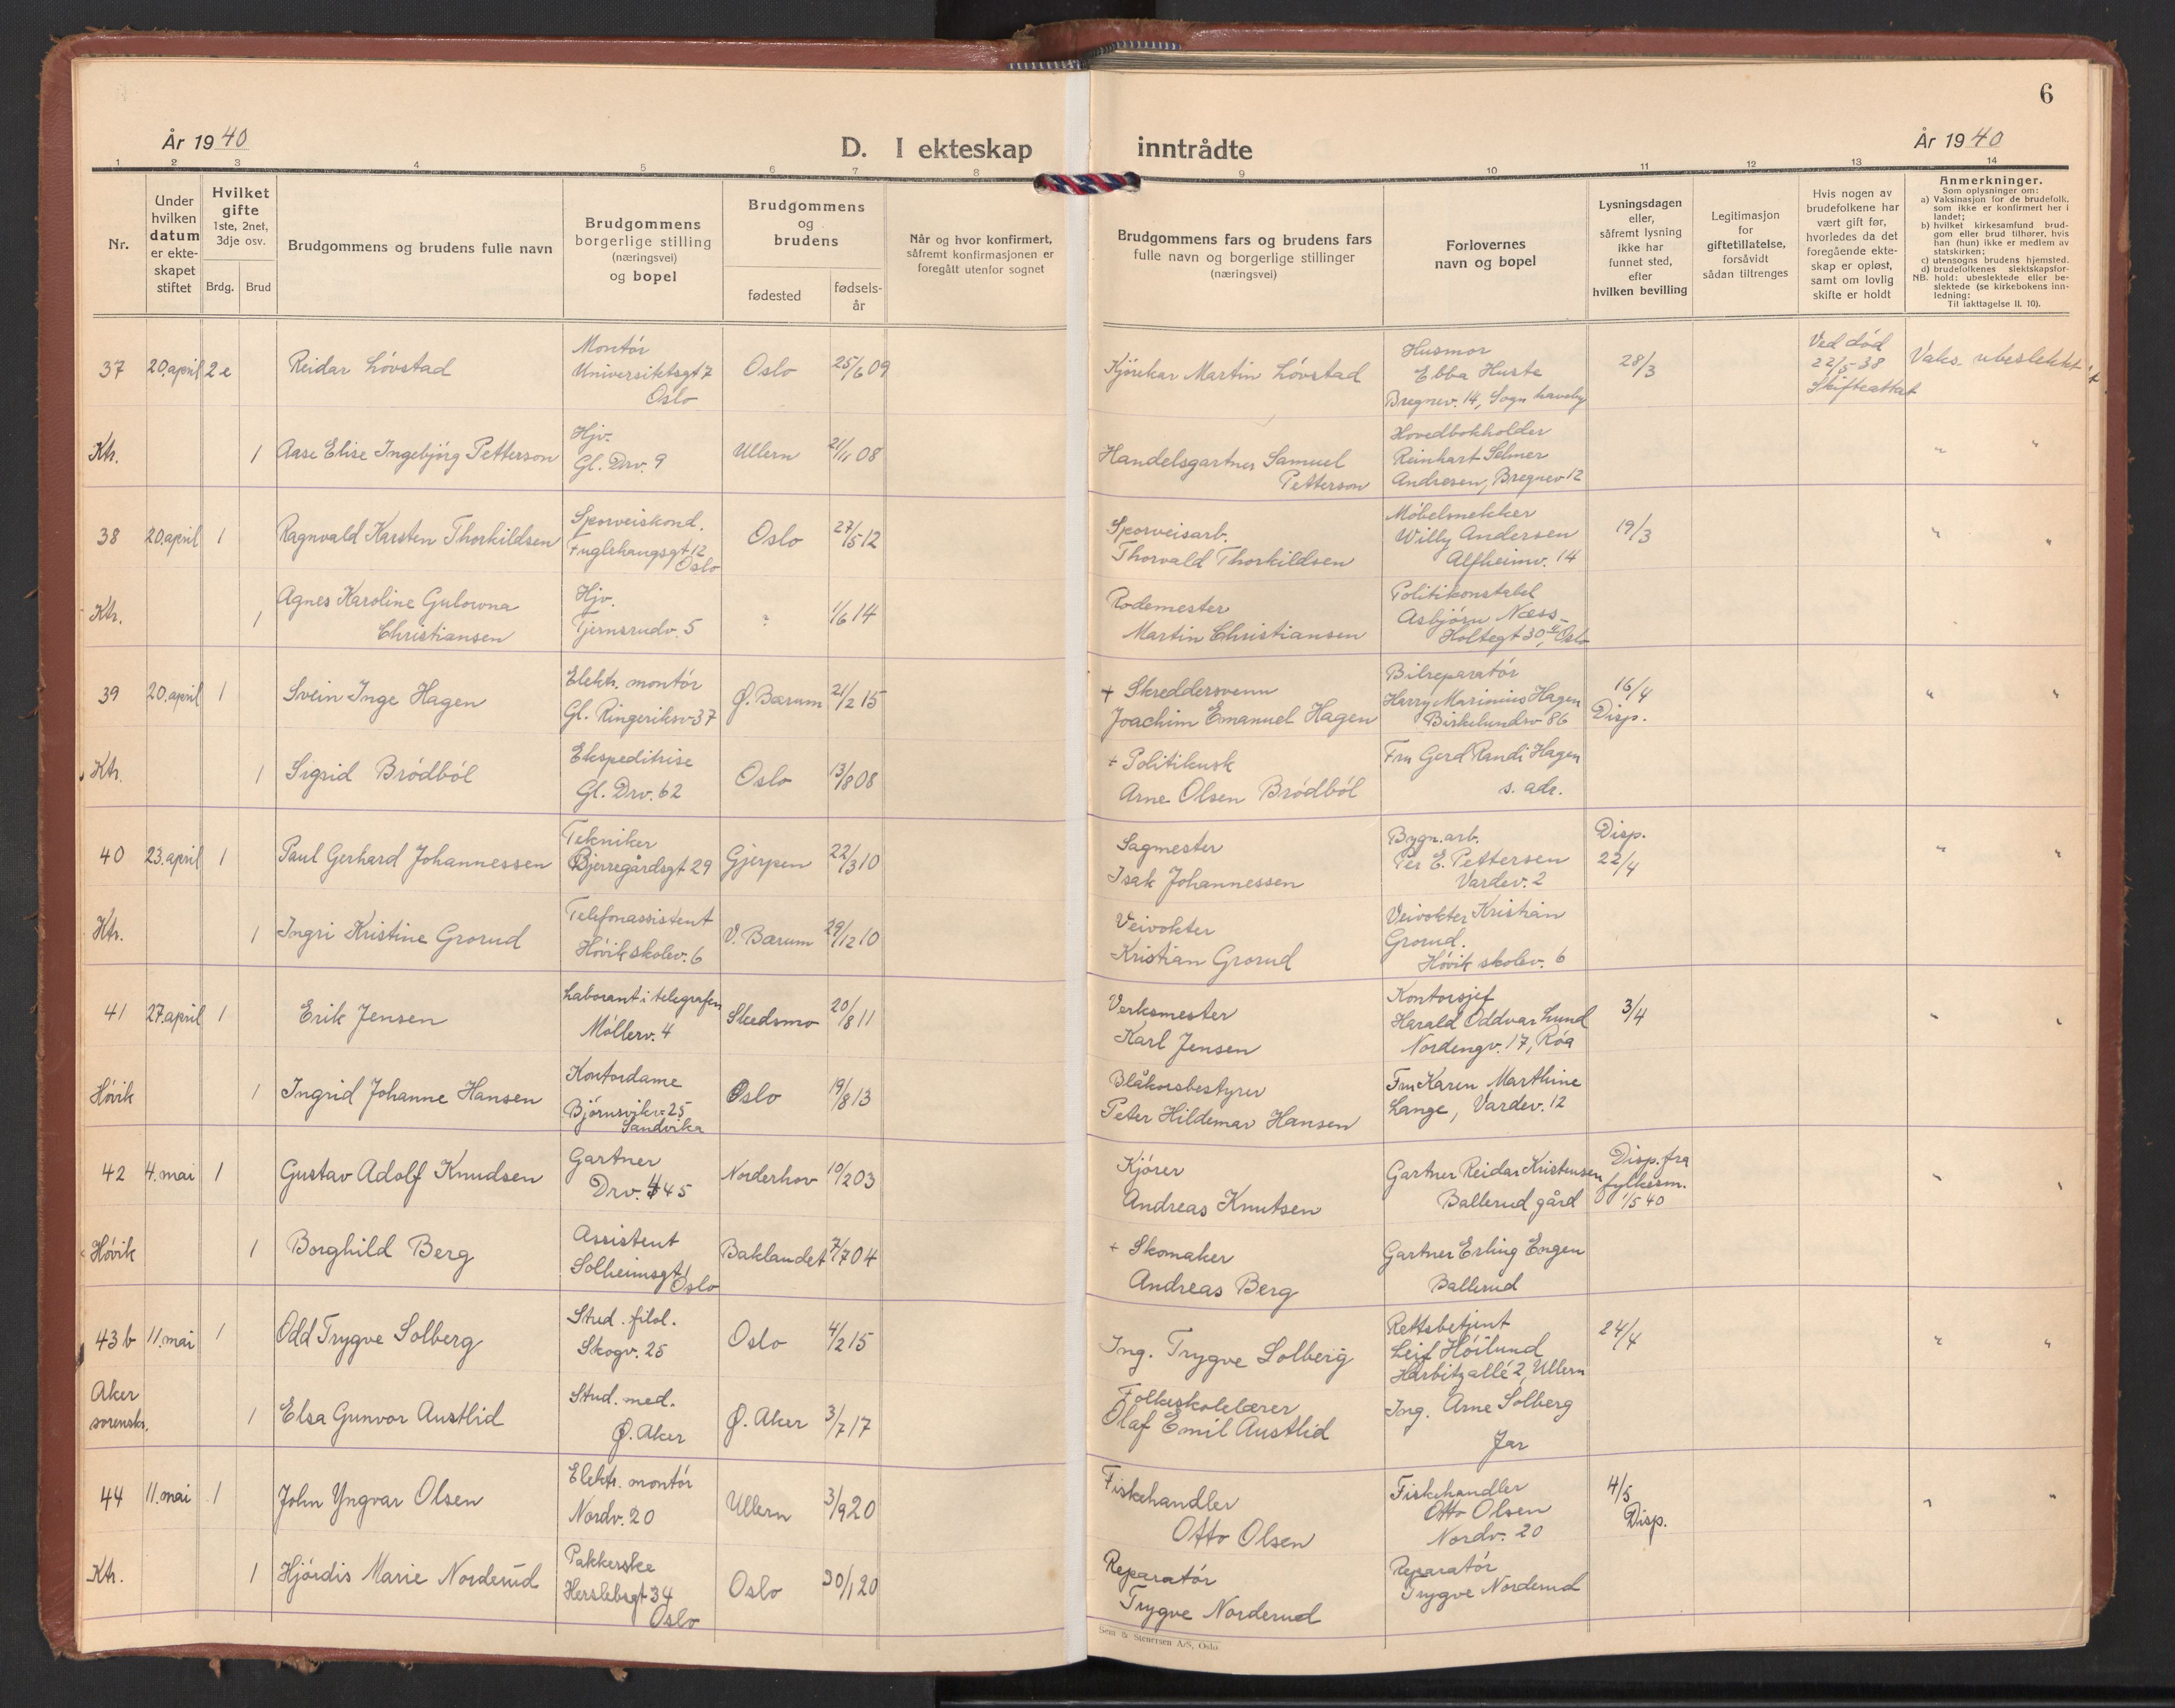 6
År 1940
D. I ekteskap inntrådte
År 1940
1 2 3 4 5 6 7 8 9 10 11 12 13 14
Nr.
Under hvilken datum er ekte-skapet stiftet
Hvilket gifte 1ste, 2net, 3dje osv.
Brdg. Brud
Brudgommens og brudens fulle navn
Brudgommens borgerlige stilling (næringsvei) og bopel
Brudgommens og brudens
fødested
fødsels-år
Når og hvor konfirmert, såfremt konfirmasjonen er foregått utenfor sognet
Brudgommens fars og brudens fars fulle navn og borgerlige stillinger (næringsvei)
Forlovernes navn og bopel
Lysningsdagen eller, såfremt lysning ikke har funnet sted, efter hvilken bevilling
Legitimasjon for giftetillatelse, forsåvidt sådan tiltrenges
Hvis nogen av brudefolkene har vært gift før, hvorledes da det foregående ekte-skap er opløst, samt om lovlig skifte er holdt
Anmerkninger.
Som oplysninger om:
a) Vaksinasjon for de brudefolk, som ikke er konfirmert her i landet;
b) hvilket kirkesamfund brud-gom eller brud tilhører, hvis han (hun) ikke er medlem av statskirken;
c) utensogns brudens hjemsted.
d) brudefolkenes slektskapsfor-hold: ubeslektede eller be-slektede (se kirkebokens inn-ledning:
NB. Til iakttagelse II. 10).
37 20.april 2e Reidar Lövstad Montör Universitetsgt 7 Oslo Oslo 25/6 09 Martin Lövstad Husmor Ebba Huste Bregnev. 14, Sogn haveby 28/3 Ved död 22/5-38 Skifteattest Vaks. ubeslektet
Ktr. 1 Aase Elise Ingebjörg Petterson Hjv. Gl. Drv. 9 Ullern 21/11 08 Handelsgartner Samuel Petterson Hovedbokholder Reinhart Selmer Andresen, Bregnev 12 " "
38 20.april 1 Ragnvald Karsten Thorkildsen Sporveiskond. Fuglehaugsgt 12 Oslo Oslo 27/5 12 Sporveisarb. Thorvald Thorkildsen Möbelsnekker Willy Andersen Alfheimv. 14 19/3 " "
Ktr. 1 Agnes Karoline Christiansen Hjv. Tjernsrudv. 5 " 1/6 14 Rodemester Martin Christiansen Politikonstabel Asbjörn Næss Holtegt 30, Oslo
39 20.april 1 Svein Inge Hagen Elektr. montör Gl. Ringeriksv 37 Ø. Bærum 21/2 15 + Skreddersvenn Joachim Emanuel Hagen Bilreparatör Harry Marinius Hagen Birkelundsv 86 16/4 Disp. " "
Ktr. 1 Sigrid Brödböl Ekspeditrise Gl. Drv. 62 Oslo 13/8 08 + Politikusk Arne Olsen Brödböl Fru Gerd Randi Hagen s. adr.
40 23.april 1 Paul Gerhard Johannessen Tekniker Bjerregårdsgt 29 Gjerpen 22/3 10 Sagmester Isak Johannessen Bygn.arb. Per E. Pettersen Vardev. 2 Disp. 22/4 " "
Ktr. 1 Ingri Kristine Grorud Telefonassistent Høvik skolev. 6 V. Bærum 29/12 10 Veivokter Kristian Grorud Veivokter Kristian Grorud. Høvik skolev. 6
41 27.april 1 Erik Jensen Laborant i telegrafen Möllerv. 4 Skedsmo 20/8 11 Verksmester Karl Jensen Kontorsjef Harald Oddvar Lund Nordengv. 17, Röa 3/4 " "
Høvik 1 Ingrid Johanne Hansen Kontordame Björnsvikv 25 Sandvika Oslo 19/8 13 Blåkorsbestyrer Peter Hildemar Hansen Fru Karen Marthine Lange, Vardev. 12
42 4.mai 1 Gustav Adolf Knudsen Gartner Drv. 45 Norderhov 10/2 03 Kjörer Andreas Knutsen Gartner Reidar Kristensen Ballerud gård Disp. fra fylkesm. 1/5 40 " "
Høvik 1 Borghild Berg Assistent Solheimsgt 1 Oslo Baklandet 7/7 04 + Skomaker Andreas Berg Gartner Erling Engen Ballerud
43 b 11.mai 1 Odd Trygve Solberg Stud. filol. Skogv. 25 Oslo 4/2 15 Ing. Trygve Solberg Rettsbetjent Leif Höilund Harbitzallé 2, Ullern 24/4 " "
Aker sorenskr. 1 Elsa Gunvor Austlid Stud. med. Ø. Aker Ø. Aker 3/7 17 Folkeskolelærer Olaf Emil Austlid Ing. Arne Solberg Jar
44 11.mai 1 John Yngvar Olsen Elektr. montör Nordv. 20 Ullern 3/9 20 Fiskehandler Otto Olsen Fiskehandler Otto Olsen Nordv. 20 4/5 Disp. " "
Ktr. 1 Hjördis Marie Norderud Pakkerske Herslebsgt 34 Oslo Oslo 30/1 20 Reparatör Trygve Norderud Reparatör Trygve Norderud
Sem & Stenersen A/S, Oslo